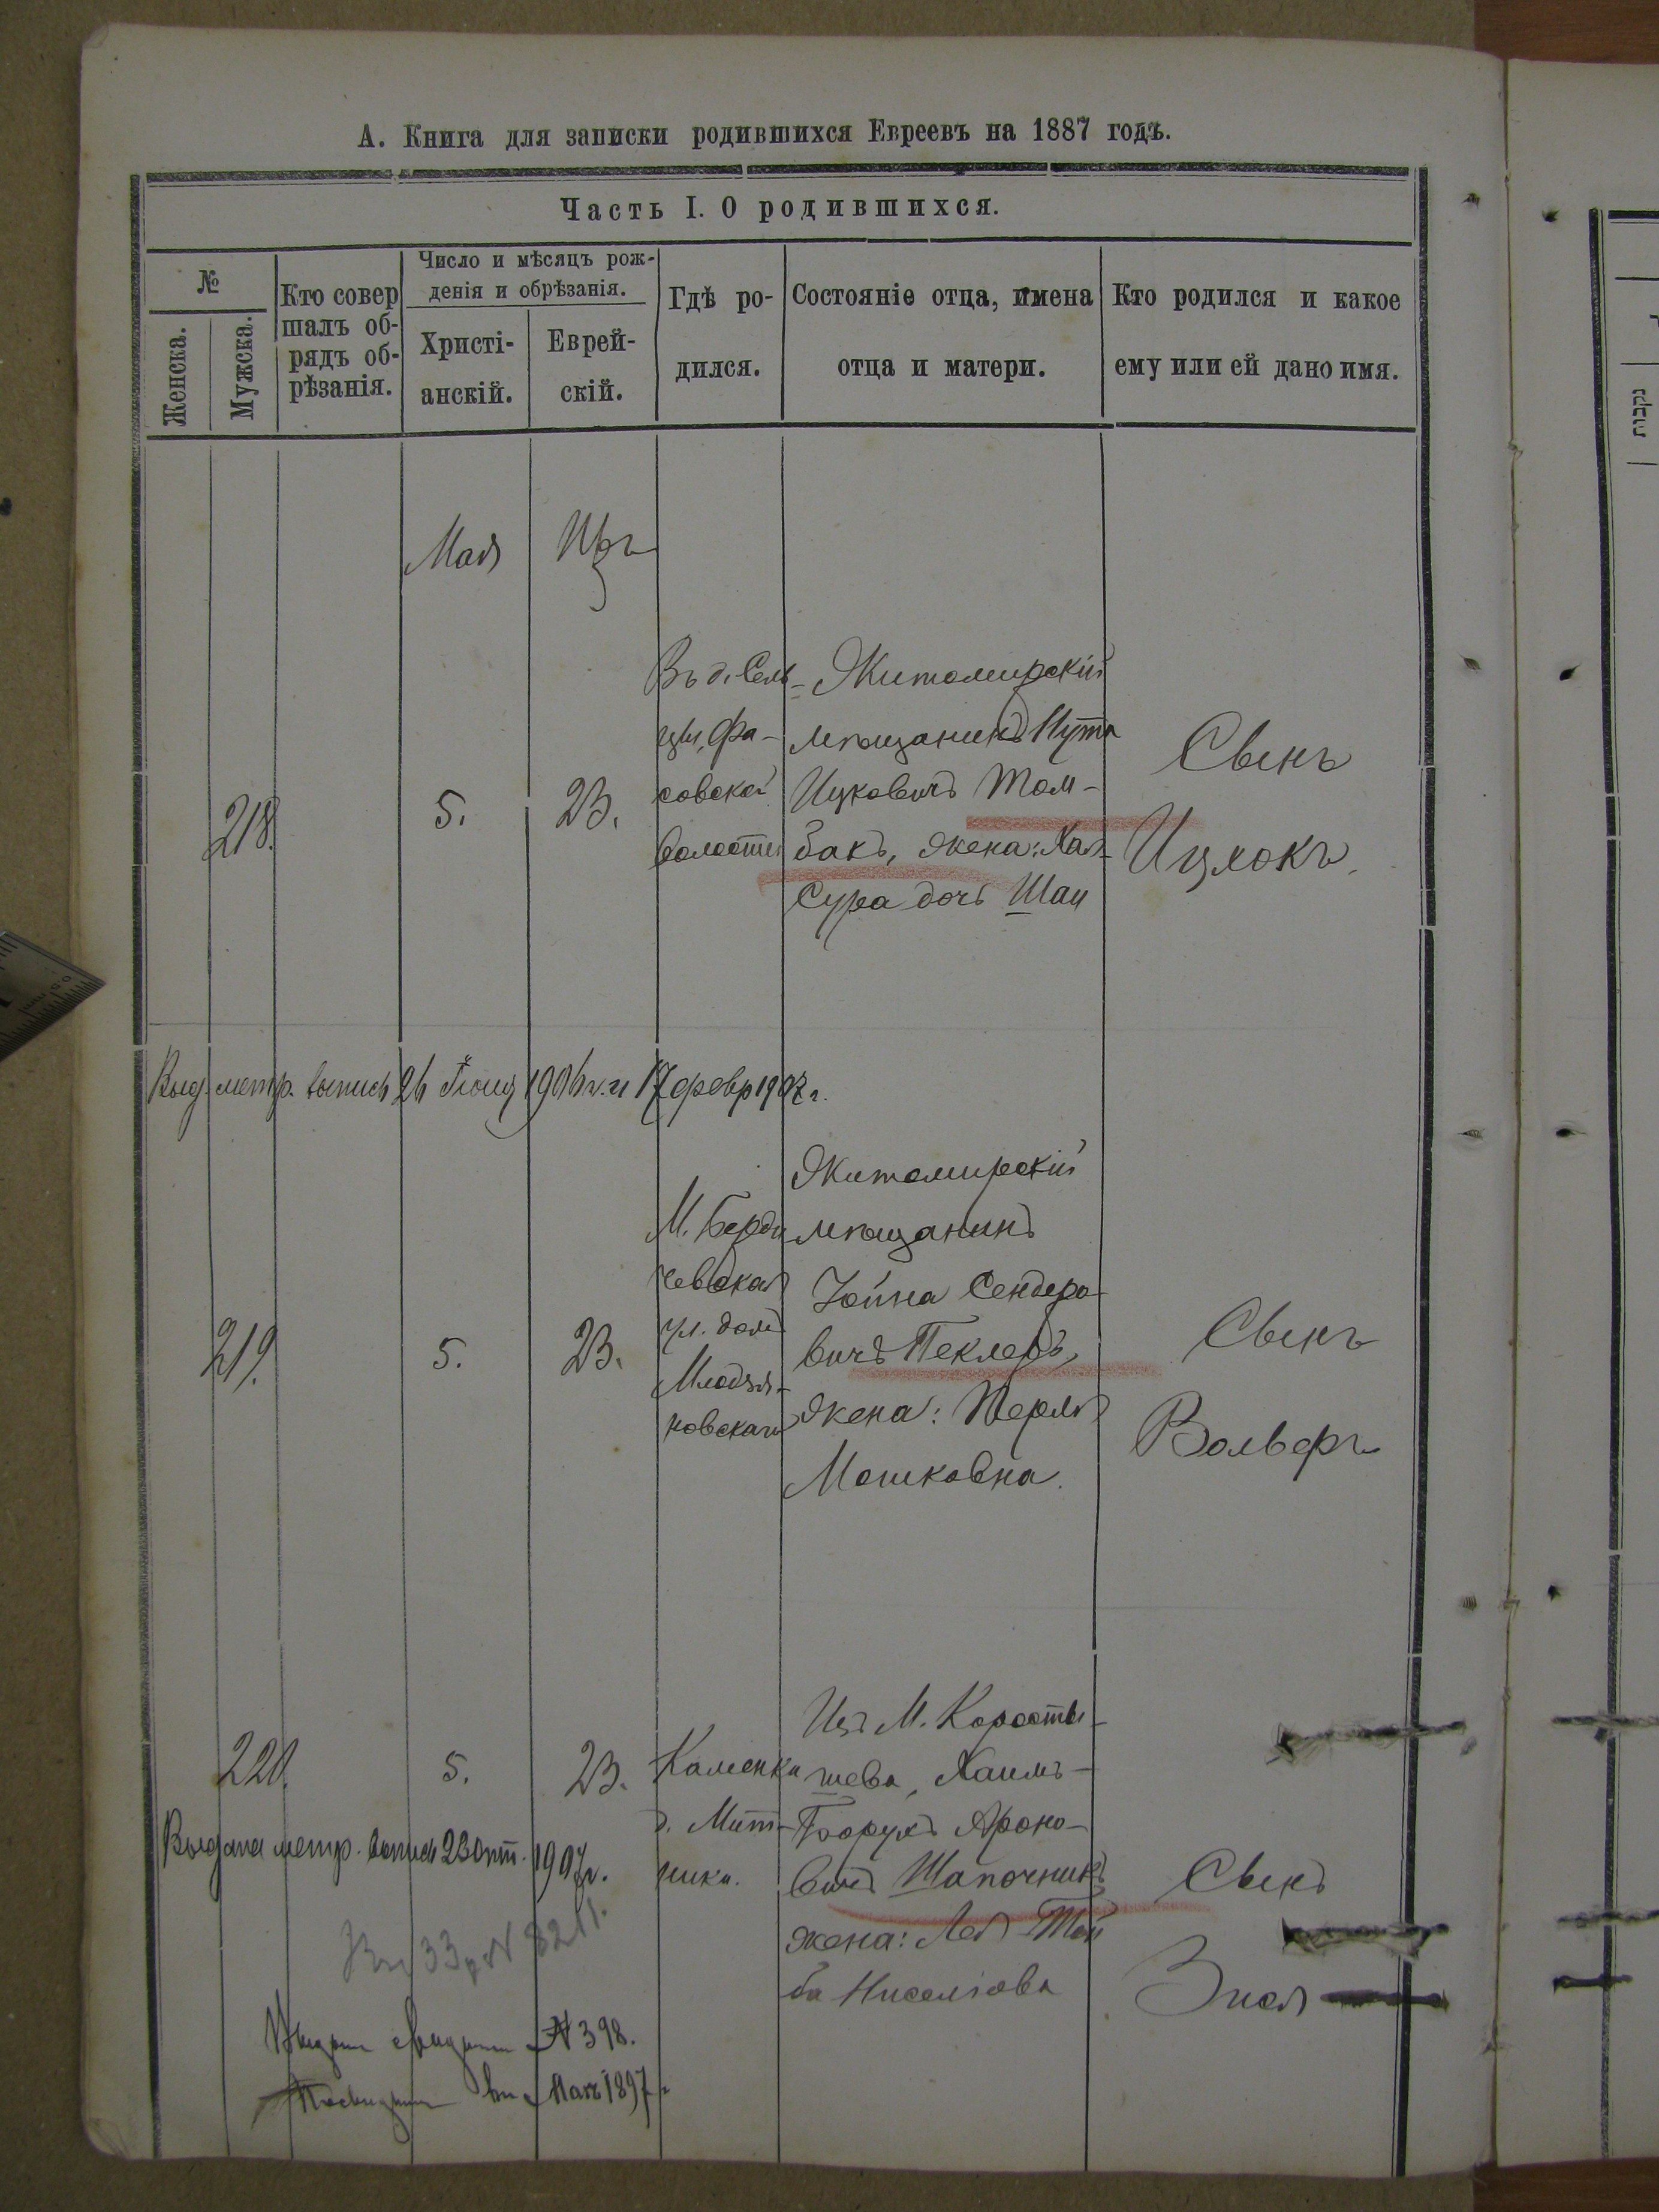 А. Книга для записки родившихся Евреевъ на 1887 годъ.
Часть I. О родившихся.
№
Женска.
Мужска.
Кто совер
шалъ об-
рядъ об-
рѣзанія.
Число и мѣсяцъ рож-
денія и обрѣзанія.
Христі-
анскій.
Еврей-
скій.
Гдѣ ро-
дился.
Состояніе отца, имена
отца и матери.
Кто родился и какое
ему или ей дано имя.
Мая
218.
5.
23.
Въ д.
Фа-
совской
волости
Житомирскій
мѣщанинъ Нута
Ицковичъ Том-
бакъ, жена: Хая-
Сура дочь Шаи
Сынъ
Ицхокъ.
Выд. метр. выпись 26 Іюня 1906 г. и 17 февр 1907 г.
219.
5.
23.
М. Берди
чевская
ул. домъ
Млодзя-
новскаго
Житомирскій
мѣщанинъ
Іойна Сендеро-
вичъ Пеклеръ,
жена: Перля
Мошковна.
Сынъ
Вольфъ
220.
5.
23.
Каменка
д.
Изъ М. Коросты-
шева, Хаимъ-
Борухъ Ароно-
вичъ Шапочникъ
жена: Лея Той
ба Ниселіова
Сынъ
Зися
Выдана метр. выпись 23 окт. 1907 г.
33 № 8211.
№ 398.
1897 г